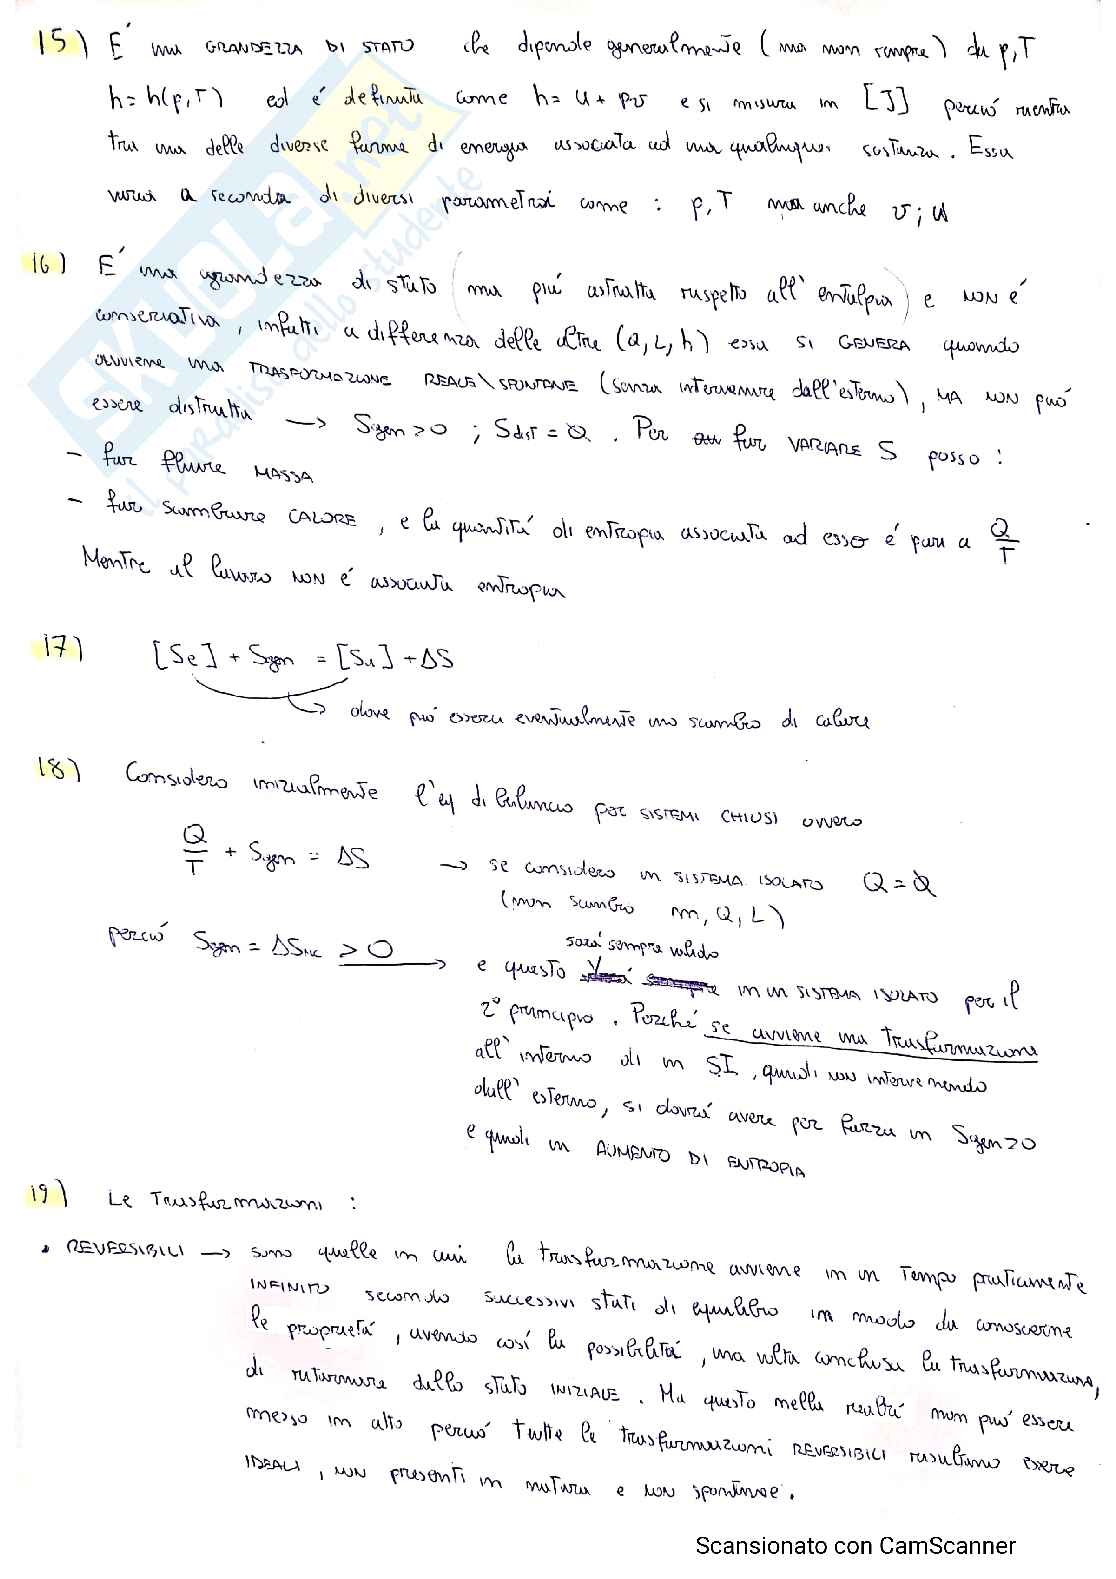 15) E' una GRANDEZZA DI STATO che dipende generalmente (ma non sempre) da p,T
h = h(p,T) ed é definita come h = u + pv e si misura in [J] perció rientra
tra una delle diverse forme di energia associata ad una qualunque sostanza. Essa
varia a seconda di diversi parametri come : p,T ma anche v; u
16) E' una grandezza di stato (ma piú astratta rispetto all' entalpia) e NON É
conservativa, infatti a differenza delle altre (Q, L, h) essa SI GENERA quando
avviene una TRASFORMAZIONE REALE\SPONTANE (senza intervenire dall'esterno), MA NON puó
essere distrutta → Sgen > 0 ; Sdist = 0 . Per far VARIARE S posso :
- far fluire MASSA
- far scambiare CALORE, e la quantitá di entropia associata ad esso é pari a Q/T
Mentre al lavoro NON é associata entropia
17) [Se] + Sgen = [Su] + ΔS
→ dove puó esserci eventualmente uno scambio di calore
18) Considero inizialmente l'eq di bilancio per SISTEMI CHIUSI ovvero
Q/T + Sgen = ΔS → se considero un SISTEMA ISOLATO Q = 0
(non scambio m, Q, L)
perció Sgen = ΔSisc ≥ 0 → sará sempre valido
e questo in un SISTEMA ISOLATO per il
2° principio. Perché se avviene una trasformazione
all' interno di un SI, quindi non intervenendo
dall' esterno, si dovrá avere per forza un Sgen ≥ 0
e quindi un AUMENTO DI ENTROPIA
19) Le Trasformazioni :
• REVERSIBILI → sono quelle in cui la trasformazione avviene in un tempo praticamente
INFINITO secondo successivi stati di equilibrio in modo da conoscerne
le proprietá, avendo cosí la possibilitá, una volta conclusa la trasformazione,
di ritornare dallo stato INIZIALE. Ma questo nella realtá non puó essere
messo in atto perció tutte le trasformazioni REVERSIBILI risultano essere
IDEALI, NON presenti in natura e NON spontanee.
SKUOLA.net
il paradiso dello studente
Scansionato con CamScanner